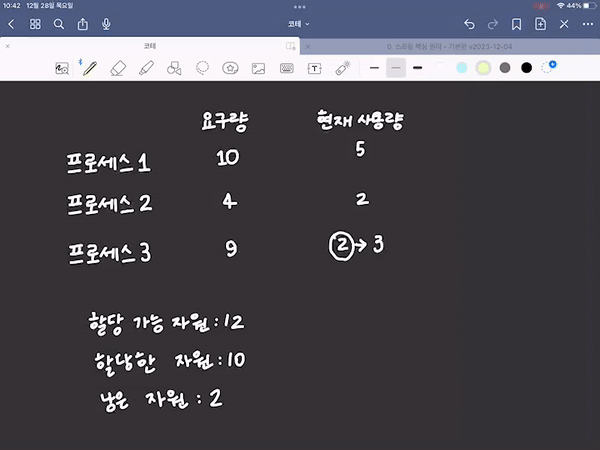 10:42 12월 28일 목요일 44%
코테
코테 0. 스프링 핵심 원리 - 기본편 v2023-12-04
요구량 현재 사용량
프로세스 1 10 5
프로세스 2 4 2
프로세스 3 9 2 → 3
할당 가능 자원 : 12
할당한 자원 : 10
남은 자원 : 2